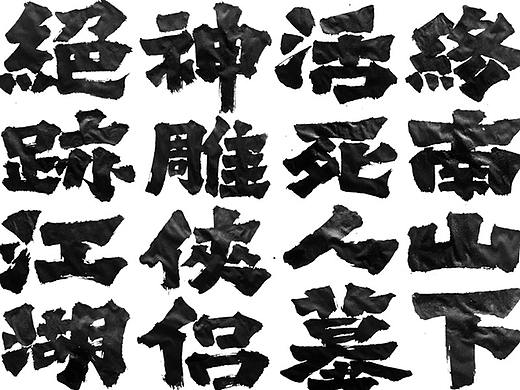 終南山下
活死人墓
神雕俠侶
絕跡江湖